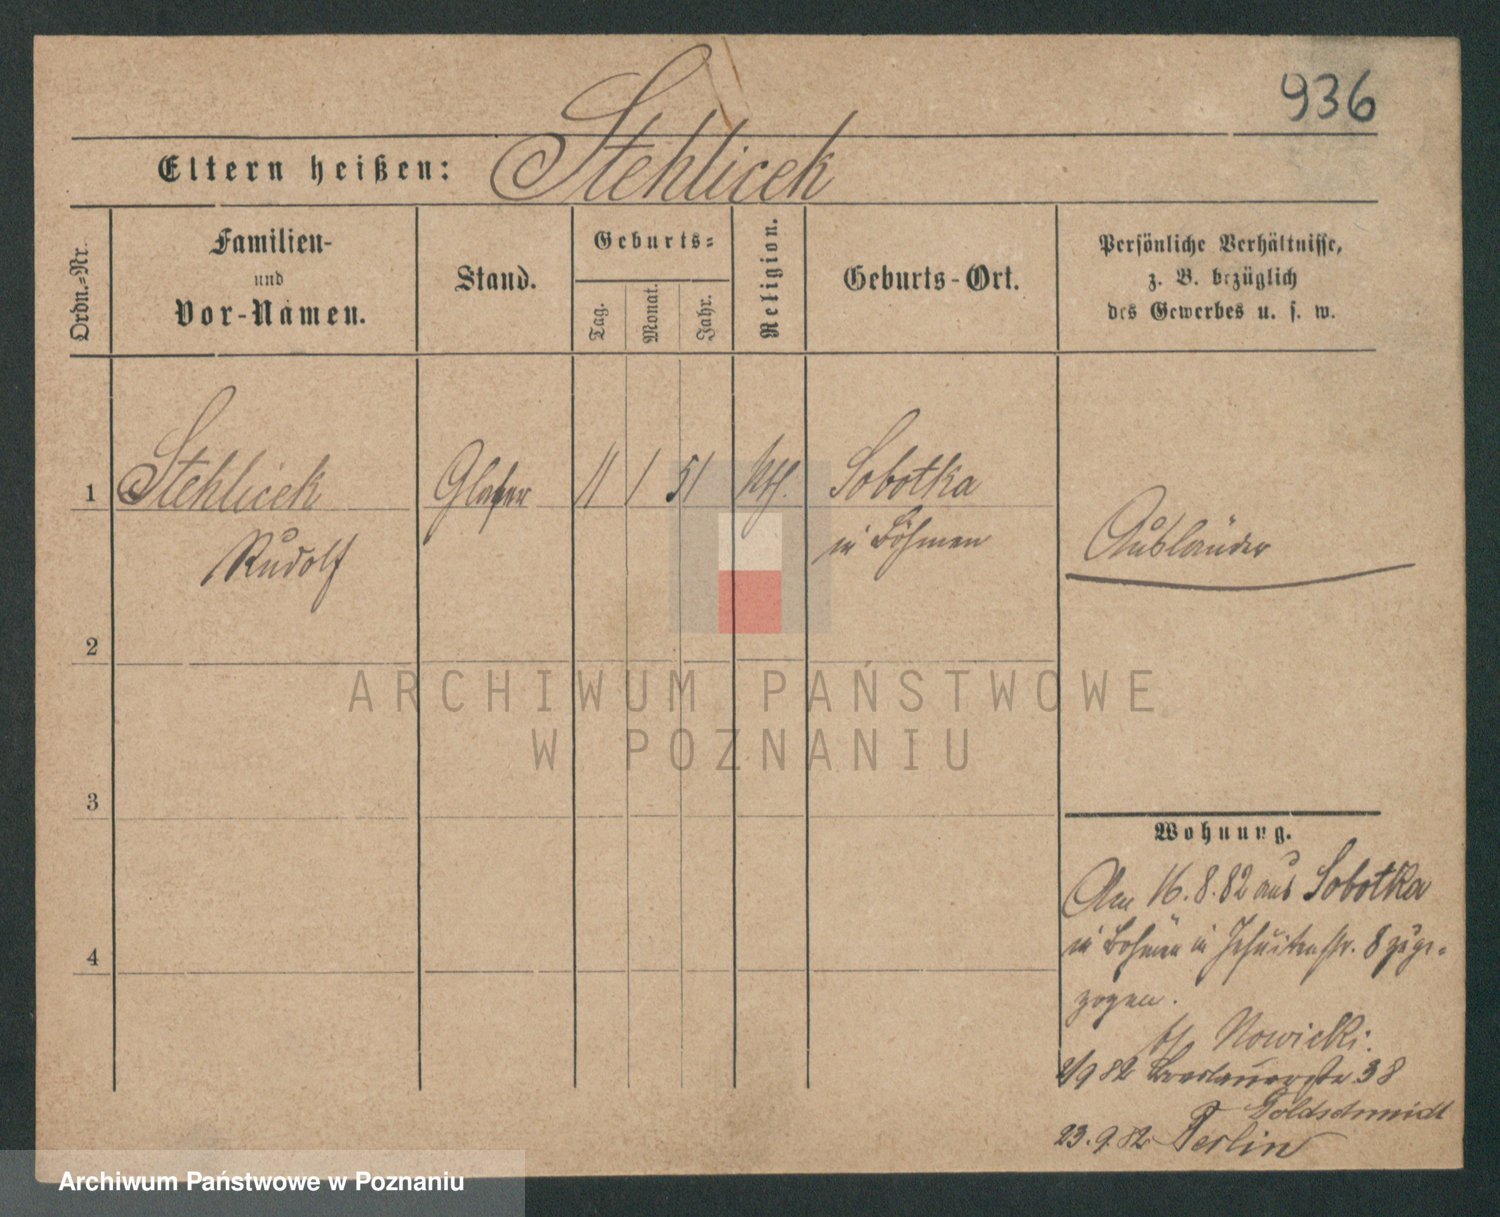 936
Eltern heißen: Stehlicek
Ordn.-Nr.
Familien-
und
Vor-Namen.
Stand.
Geburts-
Tag.
Monat.
Jahr.
Religion.
Geburts-Ort.
Persönliche Verhältnisse,
z. B. bezüglich
des Gewerbes u. s. w.
1 Stehlicek Glaser 11 1 51 kth. Sobotka
Rudolf
in Böhmen
Ausländer
2
3
4
ARCHIWUM PAŃSTWOWE
W POZNANIU
Wohnung.
Am 16.8.82 aus Sobotka
in Böhmen in Jesuitenstr. 8 zuge-
zogen.
Nowicki.
2/9 82 Breslauerstr 38
Goldschmidt
23.9.82 Berlin
Archiwum Państwowe w Poznaniu